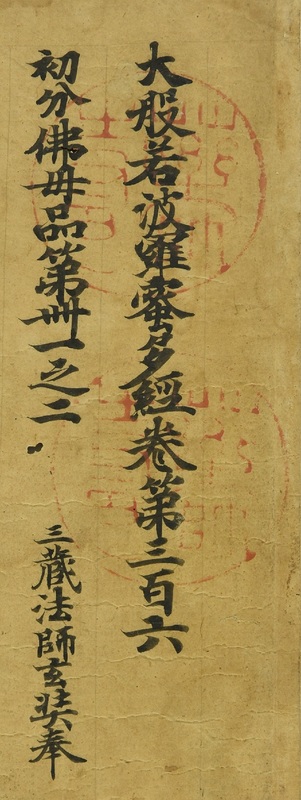 大般若波羅蜜多經卷第三百六
初分佛母品第卌一之二
三藏法師玄奘奉